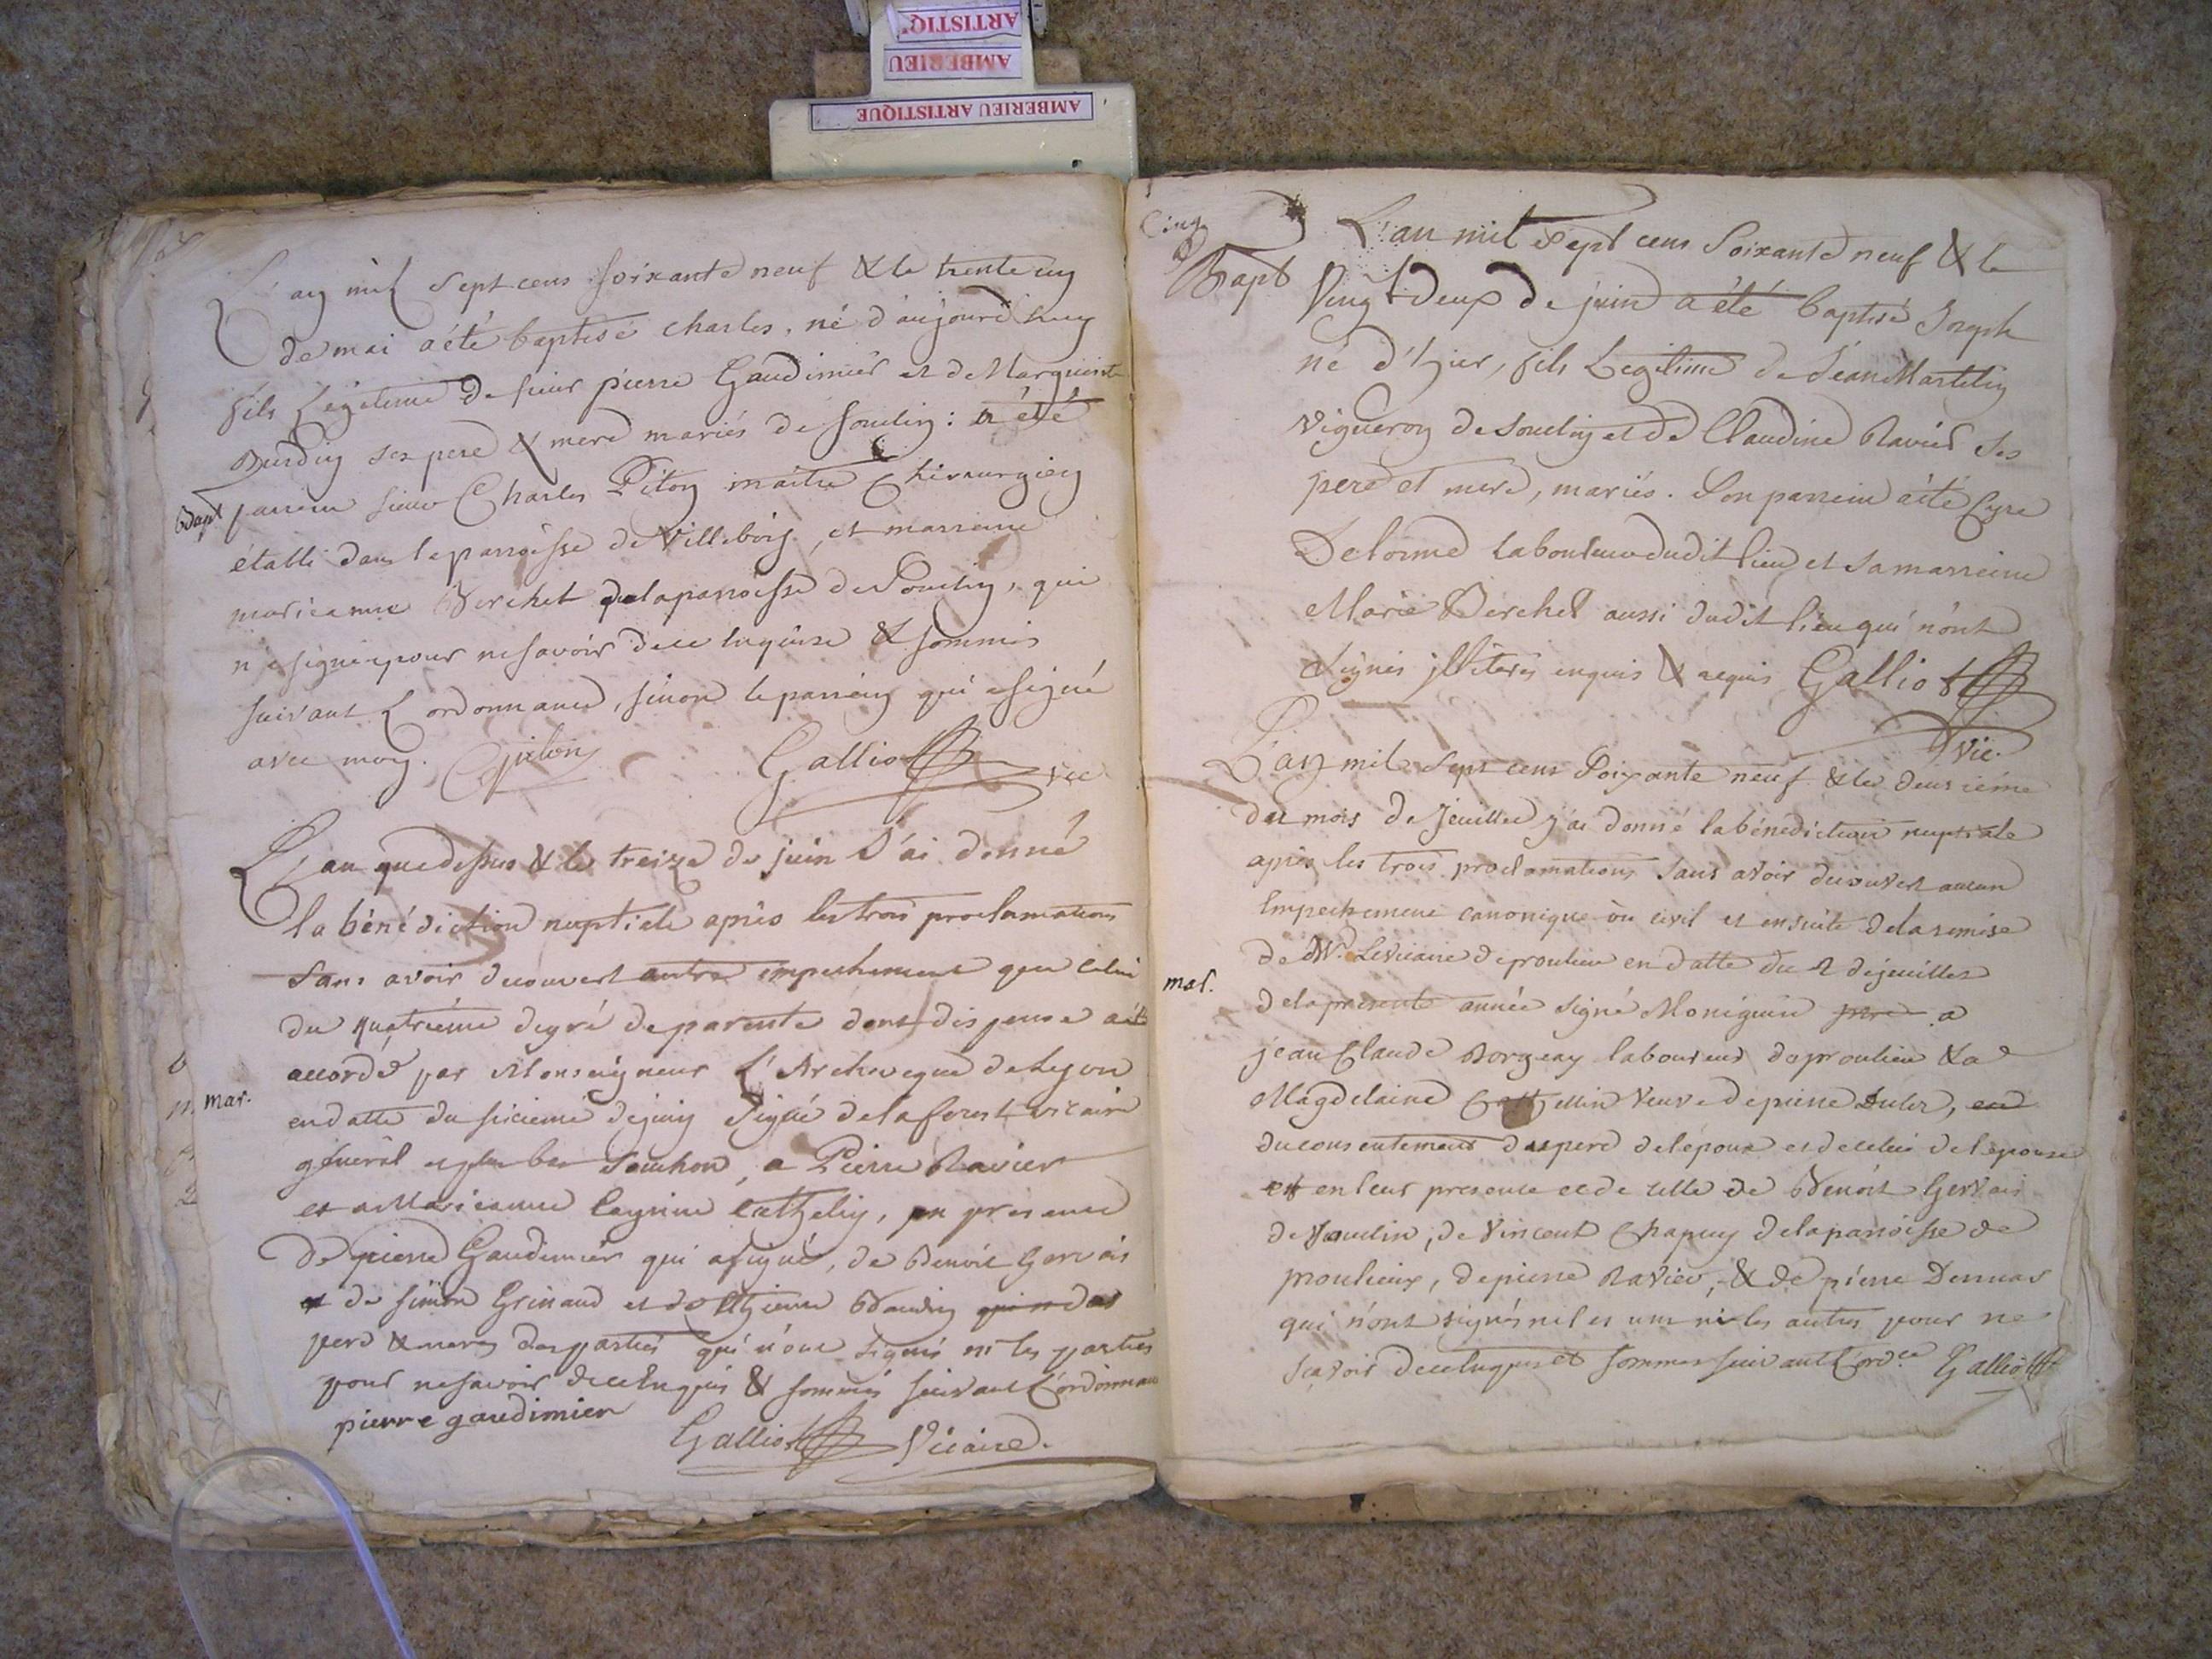 ARTISTIQ
AMBERIEU
AMBERIEU ARTISTIQUE
L'an mil sept cens soixante neuf & le trente un
de mai a été baptisé charles, né d'aujourd'huy
fils Légitime de sieur pierre Gaudimier et de Marguerite
Burdin ses pere & mere mariés de Souclin : a été
Bapt
parrein sieur Charles Piton maitre Chirurgien
établi dans la parroisse de Villebois, et marreine
marieanne Berchet de la parroisse de Souclin, qui
n'a signé pour ne savoir de ce enquise & sommée
suivant L'ordonnance, sinon le parrein qui a signé
avec moy. Cpiton Galliot vic
L'an que dessus & le treize de juin J'ai donné
la bénédiction nuptiale après les trois proclamations
sans avoir decouvert autre empechement que celui
du quatrième degré de parenté dont dispense a été
accordé par Monseigneur L'Archeveque de Lyon
mar.
en datte du sixieme de juin Signé de la forest vicaire
général et plus bas Souchon, a Pierre Ravier
et a Marieanne Cathelin, en presence
de pierre Gaudimier qui a signé, de Benoit Gervais
et de simon Grinand et de
pere & meres des parties qui n'ont signés ni les parties
pour ne savoir de ce enquis & sommés suivant L'ordonnan
pierre gaudimier
Galliot Vicaire.
Cinq
Bapt
L'an mil sept cens Soixante neuf & le
Vingt deux de juin a été baptisé Joseph
né d'hier, fils Legitime de Jean Martelin
Vigneron de Souclin et de Claudine Ravier ses
pere et mere, mariés. Son parrein a été Cyre
Delorme laboureur dudit lieu et sa marreine
Marie Berchet aussi dudit lieu qui n'ont
signés illiterés enquis & requis Galliot
vic.
L'an mil sept cens Soixante neuf & le deuxième
du mois de Jeuillet j'ai donné la bénediction nuptiale
après les trois proclamations sans avoir decouvert aucun
Empechement canonique ou civil et ensuite de la remise
de Mr. Le Vicaire de proulieu en datte du 2 de jeuillet
mar.
de la presente année signé Moniguin a
jean Claude Borgeay laboureur de proulieu & a
Magdelaine Cathellin Veuve de pierre
du consentement des pere de l'époux et de celui de l'epouse
en leur presence et de celle de Benoit Gervais
de Souclin, de Vincent Chapuy de la parroisse de
proulieux, de pierre Ravier, & de pierre Dennas
qui n'ont signés ni les uns ni les autres pour ne
sçavoir de ce enquis et sommes suivant l'ord.ce Galliot